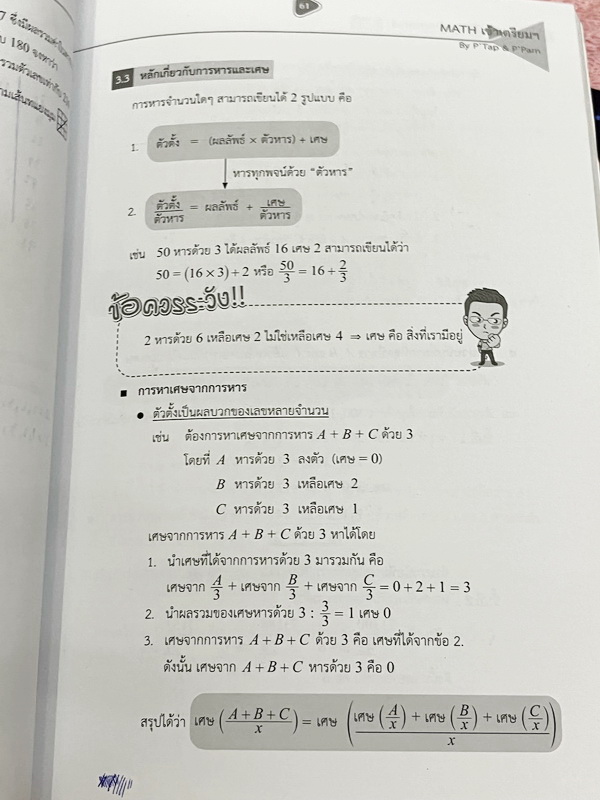 7 ซึ่งมีผลรวม
บ 180 จงหาว่า
รวมตัวเลขเท่ากับ
61
MATH เข้าเตรียมฯ
By P'Tap & P'Pam
3.3 หลักเกี่ยวกับการหารและเศษ
การหารจำนวนใดๆ สามารถเขียนได้ 2 รูปแบบ คือ
1. ตัวตั้ง = (ผลลัพธ์ × ตัวหาร) + เศษ
หารทุกพจน์ด้วย "ตัวหาร"
2. ตัวตั้ง/ตัวหาร = ผลลัพธ์ + เศษ/ตัวหาร
เช่น 50 หารด้วย 3 ได้ผลลัพธ์ 16 เศษ 2 สามารถเขียนได้ว่า
50 = (16 × 3) + 2 หรือ 50/3 = 16 + 2/3
ข้อควรระวัง!!
2 หารด้วย 6 เหลือเศษ 2 ไม่ใช่เหลือเศษ 4 ⇒ เศษ คือ สิ่งที่เรามีอยู่
■ การหาเศษจากการหาร
● ตัวตั้งเป็นผลบวกของเลขหลายจำนวน
เช่น ต้องการหาเศษจากการหาร A + B + C ด้วย 3
โดยที่ A หารด้วย 3 ลงตัว (เศษ = 0)
B หารด้วย 3 เหลือเศษ 2
C หารด้วย 3 เหลือเศษ 1
เศษจากการหาร A + B + C ด้วย 3 หาได้โดย
1. นำเศษที่ได้จากการหารด้วย 3 มารวมกัน คือ
เศษจาก A/3 + เศษจาก B/3 + เศษจาก C/3 = 0 + 2 + 1 = 3
2. นำผลรวมของเศษหารด้วย 3 : 3/3 = 1 เศษ 0
3. เศษจากการหาร A + B + C ด้วย 3 คือ เศษที่ได้จากข้อ 2.
ดังนั้น เศษจาก A + B + C หารด้วย 3 คือ 0
สรุปได้ว่า เศษ ((A + B + C)/x) = เศษ ((เศษ (A/x) + เศษ (B/x) + เศษ (C/x))/x)